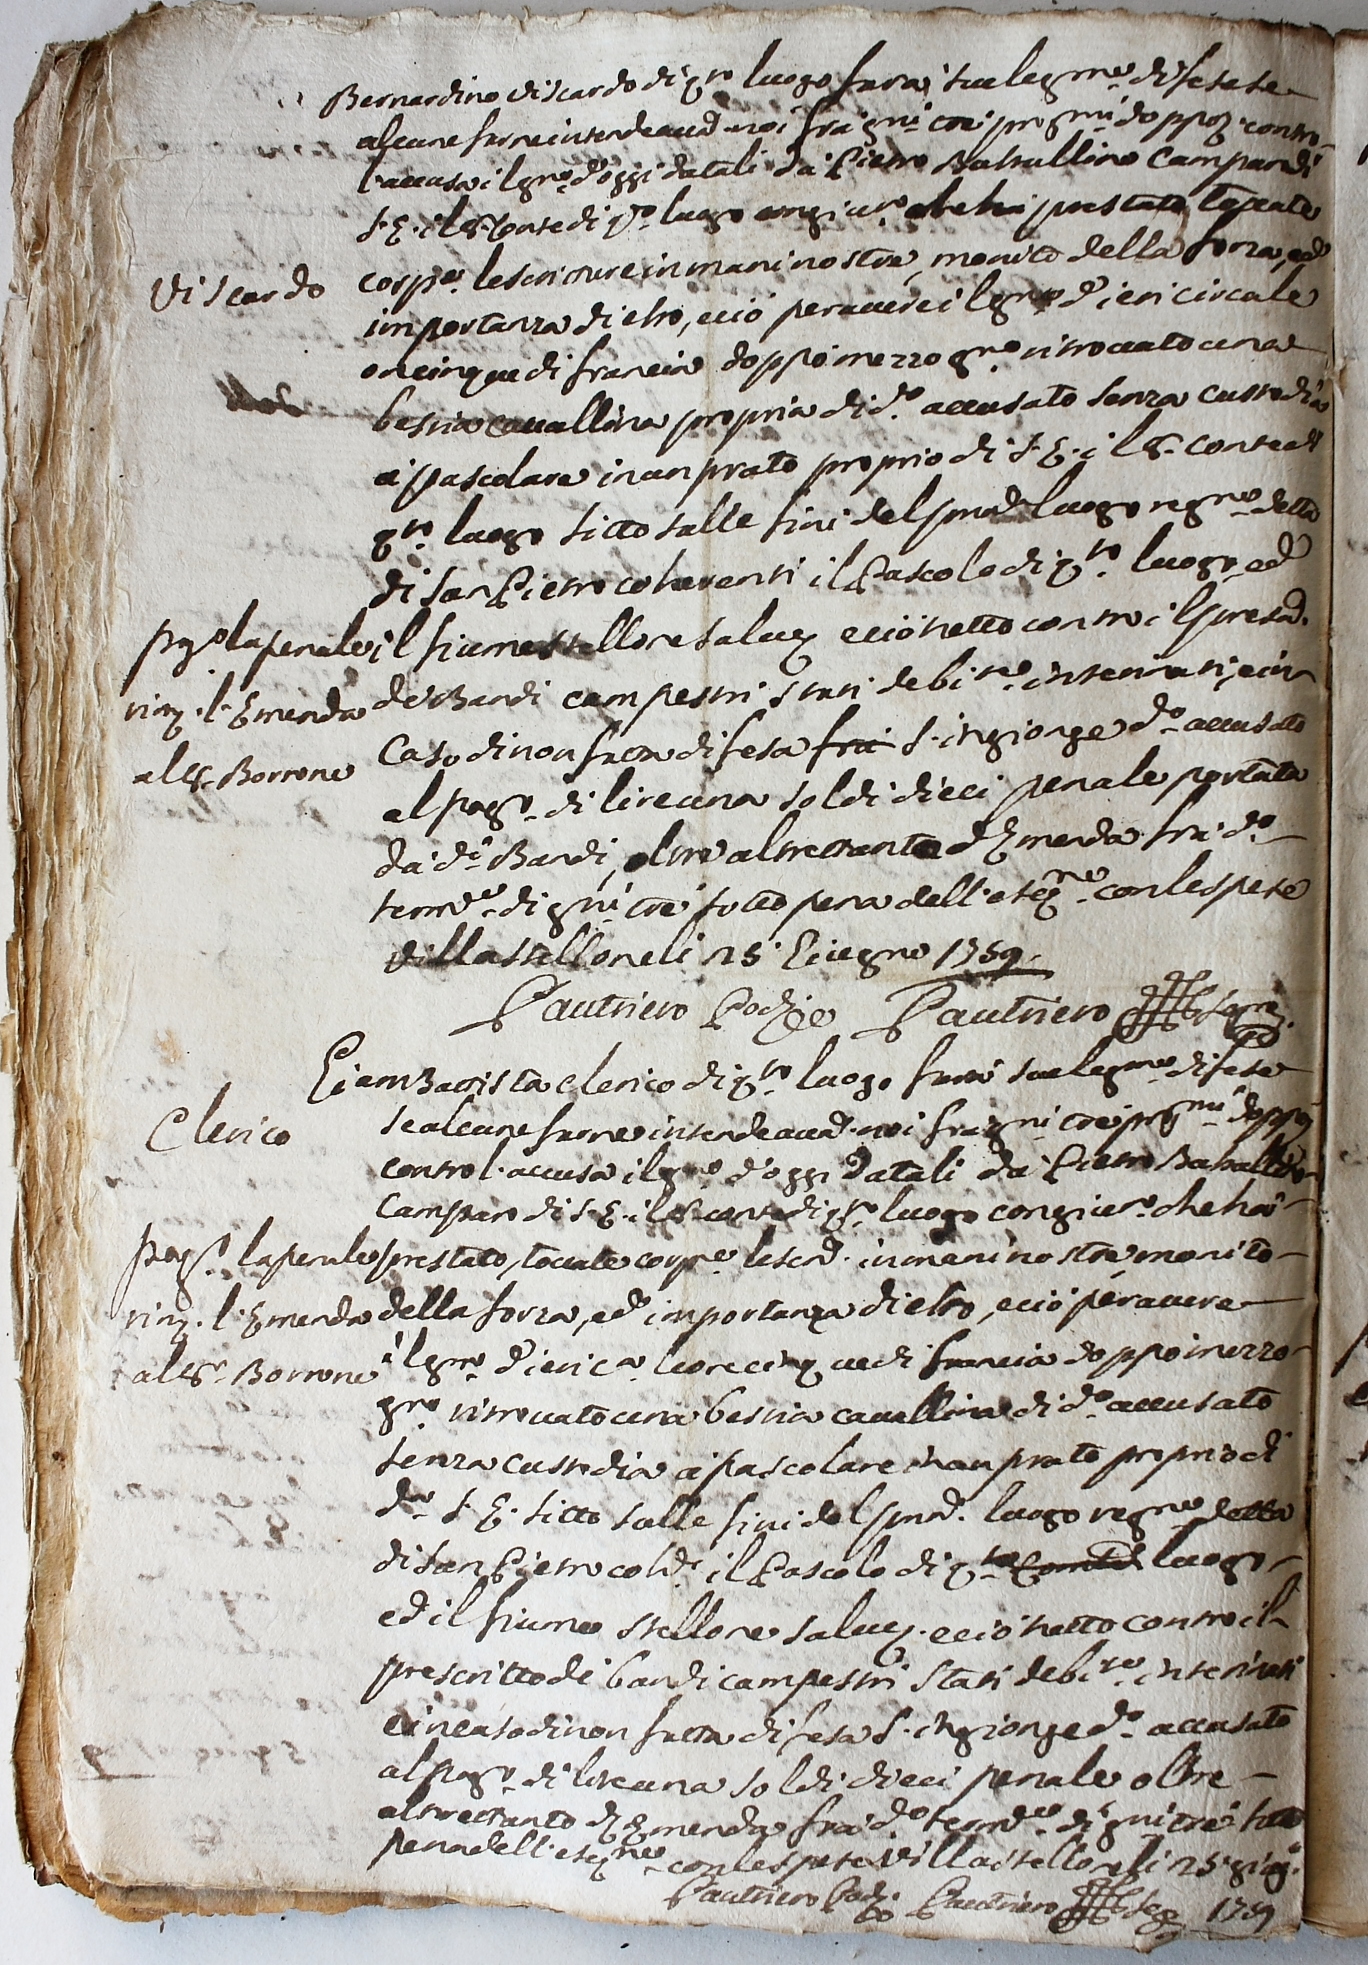 Bernardino Viscardo di q.to luogo farà sue legme difese se
alcune farne intende avd. noi frà gni tré prgmi doppo contro
l'accusa il gno d'oggi datali da Pietro Bahallino Camparo di
S. E. il S.r Conte di q.o luogo congiur.o che hà prestato toccate
Viscardo
corp.e le scritture in mani nostre, monito della forza, ed
importanza di esso, e ciò per avere il gno d'ieri circa le
ore cinque di francia doppo mezzo gno ritrovato una
bestia cavallina propria di d.o accusato senza custodia
a' pascolare in un prato proprio di S. E. il S.r Conte di
q.to luogo sitto sulle fini del pnd.o luogo regne detta
di San Pietro coherenti il Pascolo di q.to luogo ed
pag.o la penale
il fiume stellone salvy e ciò netto contro il presd.
rimy. l'Emenda
de' Bandi campestri stati debi.te interinati, e in
al S.r Borrone
Caso di non fatta difesa frà S. ingionge d.o accusato
al pag.o di lire una soldi dieci penale portata
da d.i Bandi, oltre altrettanto d'Emenda frà d.o
termne di gni tré sotto pena dell'eseqne con le spese
Villastellone li 25 Giugno 1759.
Pautriero Pod.
Pautriero Segro.
Giam Battista Clerico di q.to luogo farà sue legme difese
Clerico
se alcune farne intende avd. noi frà gni tré prgmi doppo
contro l'accusa il gno d'oggi datali da Pietro Bahallino
Camparo di S. E. il S. Conte di q.to luogo congiur.o che hà
pag.o la penale
prestato, toccate corp.e le scrd. in mani nostre monito
rimy. l'Emenda
della forza, ed importanza di esso, e ciò per avere
al S.r Borrone
il gno d'ieri ca le ore cinque di francia doppo mezzo
gno ritrovato una bestia cavallina di d.o accusato
senza custodia a' pascolare in un prato proprio di
d.a S. E. sitto sulle fini del pnd. luogo regne detta
di San Pietro coh.ti il Pascolo di q.to luogo
ed il fiume stellone salvy. e ciò netto contro il
prescritto de bandi campestri stati debi.te interinati
e in caso di non fatta difesa S. ingionge d.o accusato
al pag.o di lire una soldi dieci penale oltre
altrettanto d'Emenda frà d.o termne di gni tré sotto
pena dell'eseqne con le spese Villastellone li 25 giug.o
Pautriero Pod.
Pautriero Seg.
1759